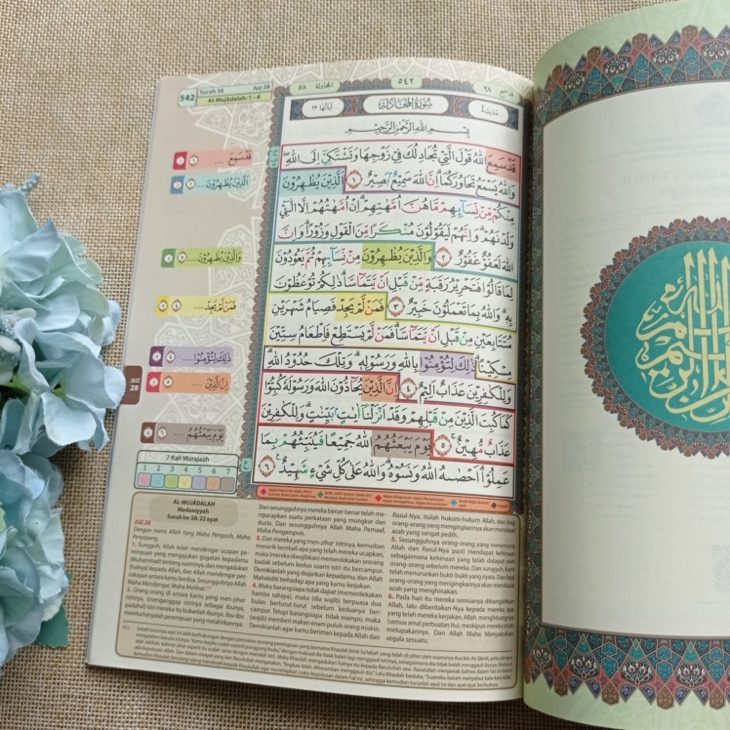 542
Surah 58
Juz 28
Al-Mujādalah: 1–6
المجادلة ٥٨
٥٤٢
٢٨
سُورَةُ الْمُجَادَلَةِ
مدنية
بِسْمِ اللهِ الرَّحْمٰنِ الرَّحِيْمِ
قَدْ سَمِعَ اللهُ قَوْلَ الَّتِيْ تُجَادِلُكَ فِيْ زَوْجِهَا وَتَشْتَكِيْٓ اِلَى اللهِ
وَاللهُ يَسْمَعُ تَحَاوُرَكُمَا اِنَّ اللهَ سَمِيْعٌ بَصِيْرٌ ١ اَلَّذِيْنَ يُظٰهِرُوْنَ
مِنْكُمْ مِّنْ نِّسَآئِهِمْ مَّا هُنَّ اُمَّهٰتِهِمْ اِنْ اُمَّهٰتُهُمْ اِلَّا الّٰۤـِٔيْ
وَلَدْنَهُمْ وَاِنَّهُمْ لَيَقُوْلُوْنَ مُنْكَرًا مِّنَ الْقَوْلِ وَزُوْرًا وَاِنَّ
اللهَ لَعَفُوٌّ غَفُوْرٌ ٢ وَالَّذِيْنَ يُظٰهِرُوْنَ مِنْ نِّسَآئِهِمْ ثُمَّ يَعُوْدُوْنَ
لِمَا قَالُوْا فَتَحْرِيْرُ رَقَبَةٍ مِّنْ قَبْلِ اَنْ يَّتَمَآسَّا ذٰلِكُمْ تُوْعَظُوْنَ
بِهٖ وَاللهُ بِمَا تَعْمَلُوْنَ خَبِيْرٌ ٣ فَمَنْ لَّمْ يَجِدْ فَصِيَامُ شَهْرَيْنِ
مُتَتَابِعَيْنِ مِنْ قَبْلِ اَنْ يَّتَمَآسَّا فَمَنْ لَّمْ يَسْتَطِعْ فَاِطْعَامُ سِتِّيْنَ
مِسْكِيْنًا ذٰلِكَ لِتُؤْمِنُوْا بِاللهِ وَرَسُوْلِهٖ وَتِلْكَ حُدُوْدُ اللهِ
وَلِلْكٰفِرِيْنَ عَذَابٌ اَلِيْمٌ ٤ اِنَّ الَّذِيْنَ يُحَآدُّوْنَ اللهَ وَرَسُوْلَهٗ كُبِتُوْا
كَمَا كُبِتَ الَّذِيْنَ مِنْ قَبْلِهِمْ وَقَدْ اَنْزَلْنَآ اٰيٰتٍ بَيِّنٰتٍ وَلِلْكٰفِرِيْنَ
عَذَابٌ مُّهِيْنٌ ٥ يَوْمَ يَبْعَثُهُمُ اللهُ جَمِيْعًا فَيُنَبِّئُهُمْ بِمَا
عَمِلُوْا اَحْصٰىهُ اللهُ وَنَسُوْهُ وَاللهُ عَلٰى كُلِّ شَيْءٍ شَهِيْدٌ ٦
قَدْ سَمِعَ ....
اَلَّذِيْنَ يُظٰهِرُوْنَ ....
وَالَّذِيْنَ يُظٰهِرُوْنَ ....
فَمَنْ لَّمْ يَجِدْ ....
ذٰلِكَ لِتُؤْمِنُوْا ....
اِنَّ الَّذِيْنَ ....
يَوْمَ يَبْعَثُهُمُ ....
JUZ
28
7 Kali Murajaah
1 2 3 4 5 6 7
AL-MUJĀDALAH
Madaniyyah
Surah ke-58: 22 ayat
JUZ 28
Dengan nama Allah Yang Maha Pengasih, Maha
Penyayang.
1. Sungguh, Allah telah mendengar ucapan pe-
rempuan yang mengajukan gugatan kepadamu
(Muhammad) tentang suaminya, dan mengadukan
(halnya) kepada Allah, dan Allah mendengar per-
cakapan antara kamu berdua. Sesungguhnya Allah
Maha Mendengar, Maha Melihat.
2. Orang-orang di antara kamu yang men-zihar
istrinya, (menganggap istrinya sebagai ibunya,
padahal) istri mereka itu bukanlah ibunya. Ibu-ibu
mereka hanyalah perempuan yang melahirkannya.
Dan sesungguhnya mereka benar-benar telah me-
ngucapkan suatu perkataan yang mungkar dan
dusta. Dan sesungguhnya Allah Maha Pemaaf,
Maha Pengampun.
3. Dan mereka yang men-zihar istrinya, kemudian
menarik kembali apa yang telah mereka ucapkan,
maka (mereka diwajibkan) memerdekakan seorang
budak sebelum kedua suami istri itu bercampur.
Demikianlah yang diajarkan kepadamu, dan Allah
Mahateliti terhadap apa yang kamu kerjakan.
4. Maka barangsiapa tidak dapat (memerdekakan
hamba sahaya), maka (dia wajib) berpuasa dua
bulan berturut-turut sebelum keduanya ber-
campur. Tetapi barangsiapa tidak mampu, maka
(wajib) memberi makan enam puluh orang miskin.
Demikianlah agar kamu beriman kepada Allah dan
Rasul-Nya. Itulah hukum-hukum Allah, dan bagi
orang-orang yang mengingkarinya akan mendapat
azab yang sangat pedih.
5. Sesungguhnya orang-orang yang menentang
Allah dan Rasul-Nya pasti mendapat kehinaan
sebagaimana kehinaan yang telah didapat oleh
orang-orang sebelum mereka. Dan sungguh, Kami
telah menurunkan bukti-bukti yang nyata. Dan bagi
orang-orang yang mengingkarinya akan mendapat
azab yang menghinakan.
6. Pada hari itu mereka semuanya dibangkitkan
Allah, lalu diberitakan-Nya kepada mereka apa
yang telah mereka kerjakan. Allah menghitungnya
(semua amal perbuatan itu), meskipun mereka telah
melupakannya. Dan Allah Maha Menyaksikan
segala sesuatu.